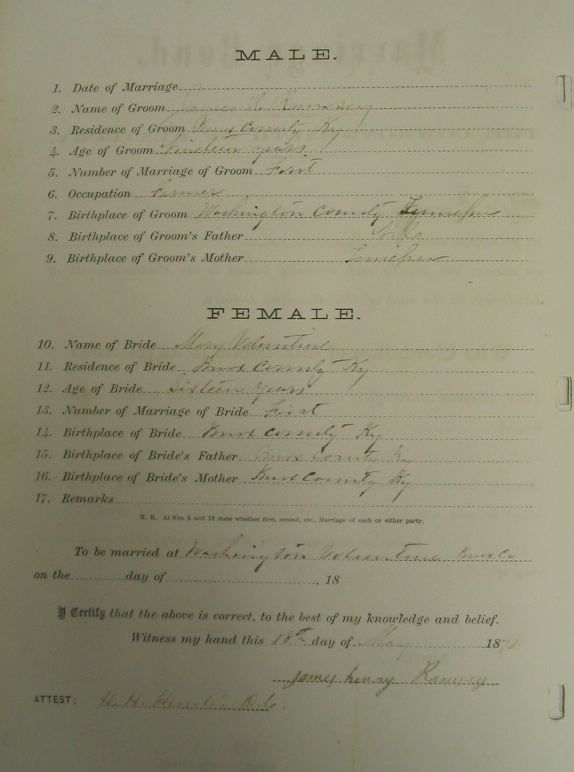 MALE.
1. Date of Marriage
2. Name of Groom James H. Ramsey
3. Residence of Groom Knox County Ky
4. Age of Groom Nineteen years
5. Number of Marriage of Groom First
6. Occupation Farmer
7. Birthplace of Groom Washington County Tennessee
8. Birthplace of Groom's Father
9. Birthplace of Groom's Mother Tennessee
FEMALE.
10. Name of Bride Mary Valentine
11. Residence of Bride Knox County Ky
12. Age of Bride Sixteen years
13. Number of Marriage of Bride First
14. Birthplace of Bride Knox County Ky
15. Birthplace of Bride's Father Knox County Ky
16. Birthplace of Bride's Mother Knox County Ky
17. Remarks
N. B. At Nos. 5 and 13 state whether first, second, etc., Marriage of each or either party.
To be married at Washington Valentine Knox Co
on the day of , 18
I Certify that the above is correct, to the best of my knowledge and belief.
Witness my hand this 18th day of May 187
James henry Ramsey
ATTEST: H. H. D.C.